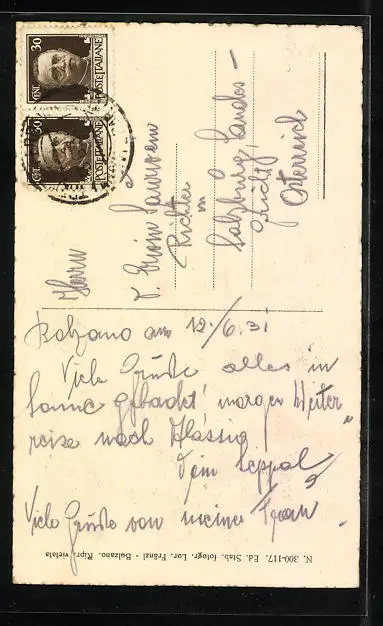 Bolzano am 12./6.31
Viele Grüße alles in
Sonne gebadet! morgen Weiter-
reise nach
Dein Seppal
Viele Grüße von meiner Frau
Herrn
Erwin
Richter
in
Salzburg, Landes-
gericht
Österreich
30 CENT. POSTE ITALIANE
30 CENT. POSTE ITALIANE
N. 300-117. Ed. Stab. fotogr. Lor. Fränzl - Bolzano. Ripr. vietata